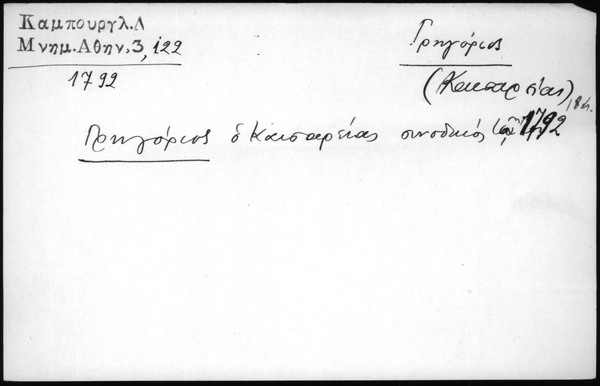 Καμπουργλ.Δ
Μνημ.Αθην.3,122
1792
Γρηγόριος
(Καισαρείας) 18 αι.
Γρηγόριος ὁ Καισαρείας συνοδικός 1792